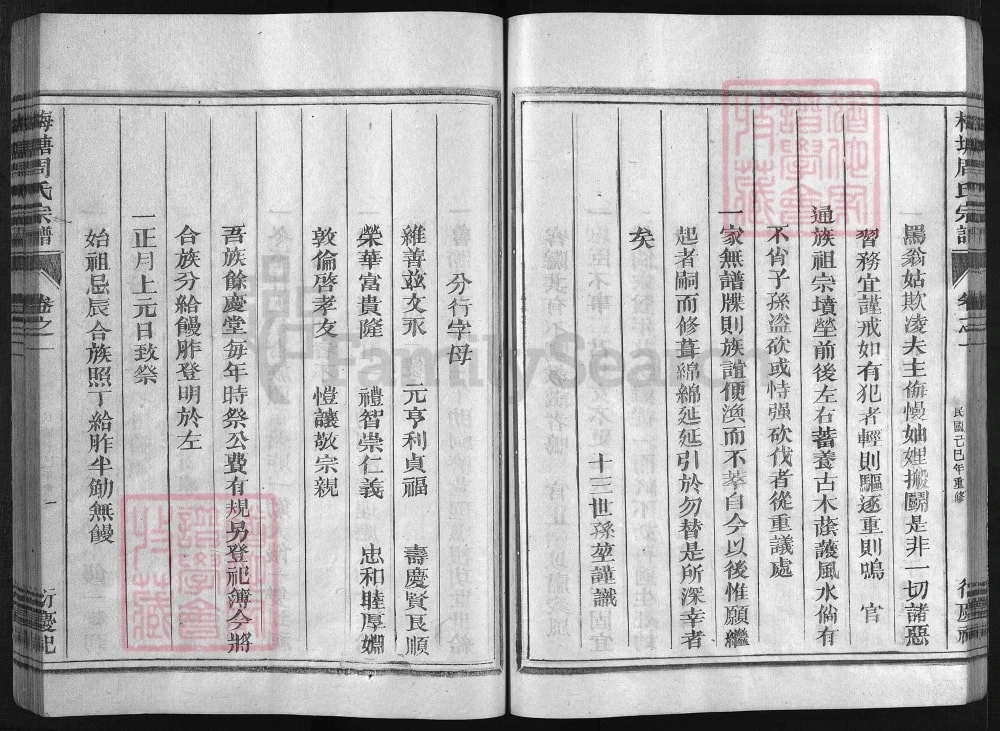 梅塘周氏宗譜
卷之一
民國己巳年重修
罵翁姑欺凌夫主侮慢妯娌搬鬭是非一切諸惡
習務宜謹戒如有犯者輕則驅逐重則鳴 官
通族祖宗墳塋前後左右蓄養古木蔭護風水倘有
不肖子孫盜砍或恃强砍伐者從重議處
一家無譜牒則族誼便渙而不萃自今以後惟願繼
起者嗣而修葺綿綿延延引於勿替是所深幸者
矣
十三世孫堃謹識
分行字母
維善茲文永 元亨利貞福 壽慶賢良順
榮華富貴隆 禮智崇仁義 忠和睦厚婣
敦倫啓孝友 愷讓敬宗親
吾族餘慶堂每年時祭公費有規另登祀簿今將
合族分給饅胙登明於左
一正月上元日致祭
始祖忌辰合族照丁給胙半觔無饅
梅塘周氏宗譜
卷之一
一
衍慶祀
FamilySearch